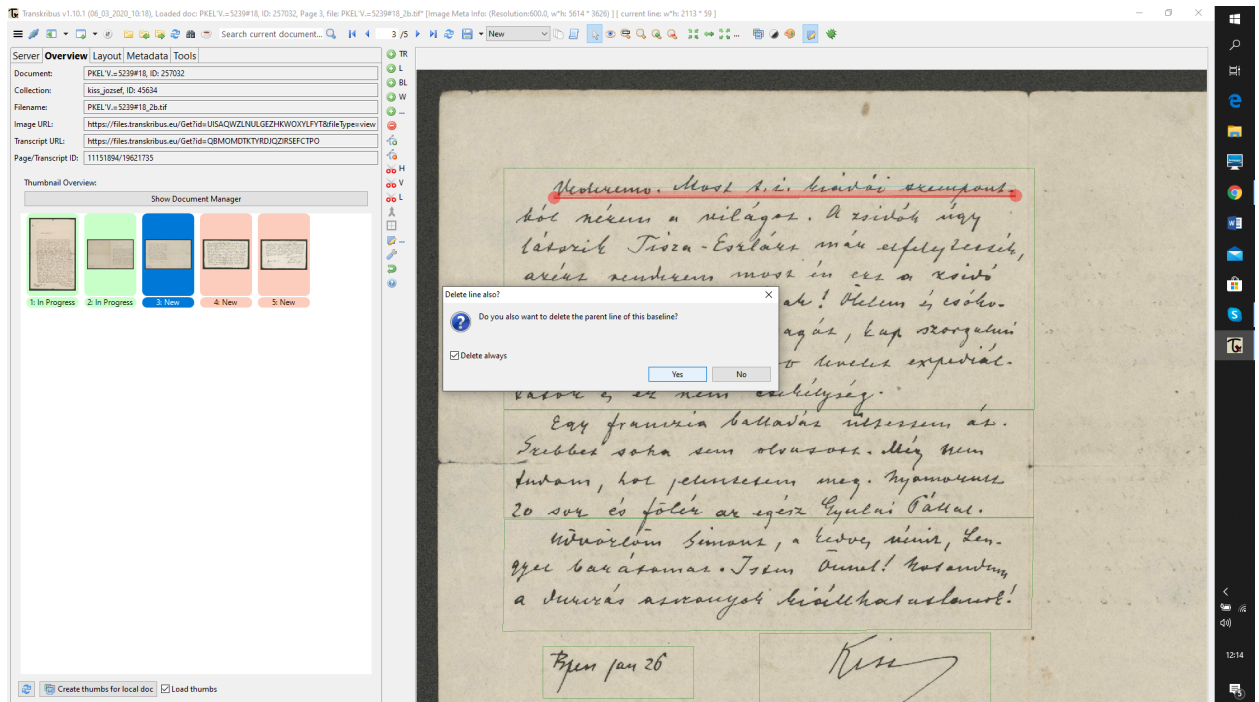 Transkribus v1.10.1 (06_03_2020_10:18), Loaded doc: PKEL'V.=5239#18, ID: 257032, Page 3, file: PKEL'V.=5239#18_2b.tif* [Image Meta Info: (Resolution:600.0, w*h: 5614 * 3626) ] [ current line: w*h: 2113 * 59 ]
Search current document...
3 /5
New
Server Overview Layout Metadata Tools
Document: PKEL'V.=5239#18, ID: 257032
Collection: kiss_jozsef, ID: 45634
Filename: PKEL'V.=5239#18_2b.tif
Image URL: https://files.transkribus.eu/Get?id=UISAQWZLNULGEZHKWOXYLFYT&fileType=view
Transcript URL: https://files.transkribus.eu/Get?id=QBMOMDTKTYRDJQZIRSEFCTPO
Page/Transcript ID: 11151894/19621735
Thumbnail Overview:
Show Document Manager
1: In Progress 2: In Progress 3: New 4: New 5: New
Create thumbs for local doc Load thumbs
TR
L
BL
W
...
H
V
L
Vederemo. Most t.i. kiadói szempont-
ból nézem a világot. A zsidók úgy
látszik Tisza-Eszlárt már elfelejtették,
azért rendezem most én ezt a zsidó
ak! Ölelem és csóko-
agát, kap szorgalmi
levelet expediál-
és ez nem csekélység.
Egy franczia balladát ültettem át.
Szebbet soha sem olvasott. Még nem
tudom, hol jelentetem meg. Nyomorult
20 sor és fölér az egész Gyulai Pállal.
Üdvözlöm Simont, a kedves nénit, Len-
gyel barátomat. Isten Önnel!
a asszonyok kiállhatatlanok!
Bpen jan 26
Kiss
Delete line also?
Do you also want to delete the parent line of this baseline?
Delete always
Yes No
12:14